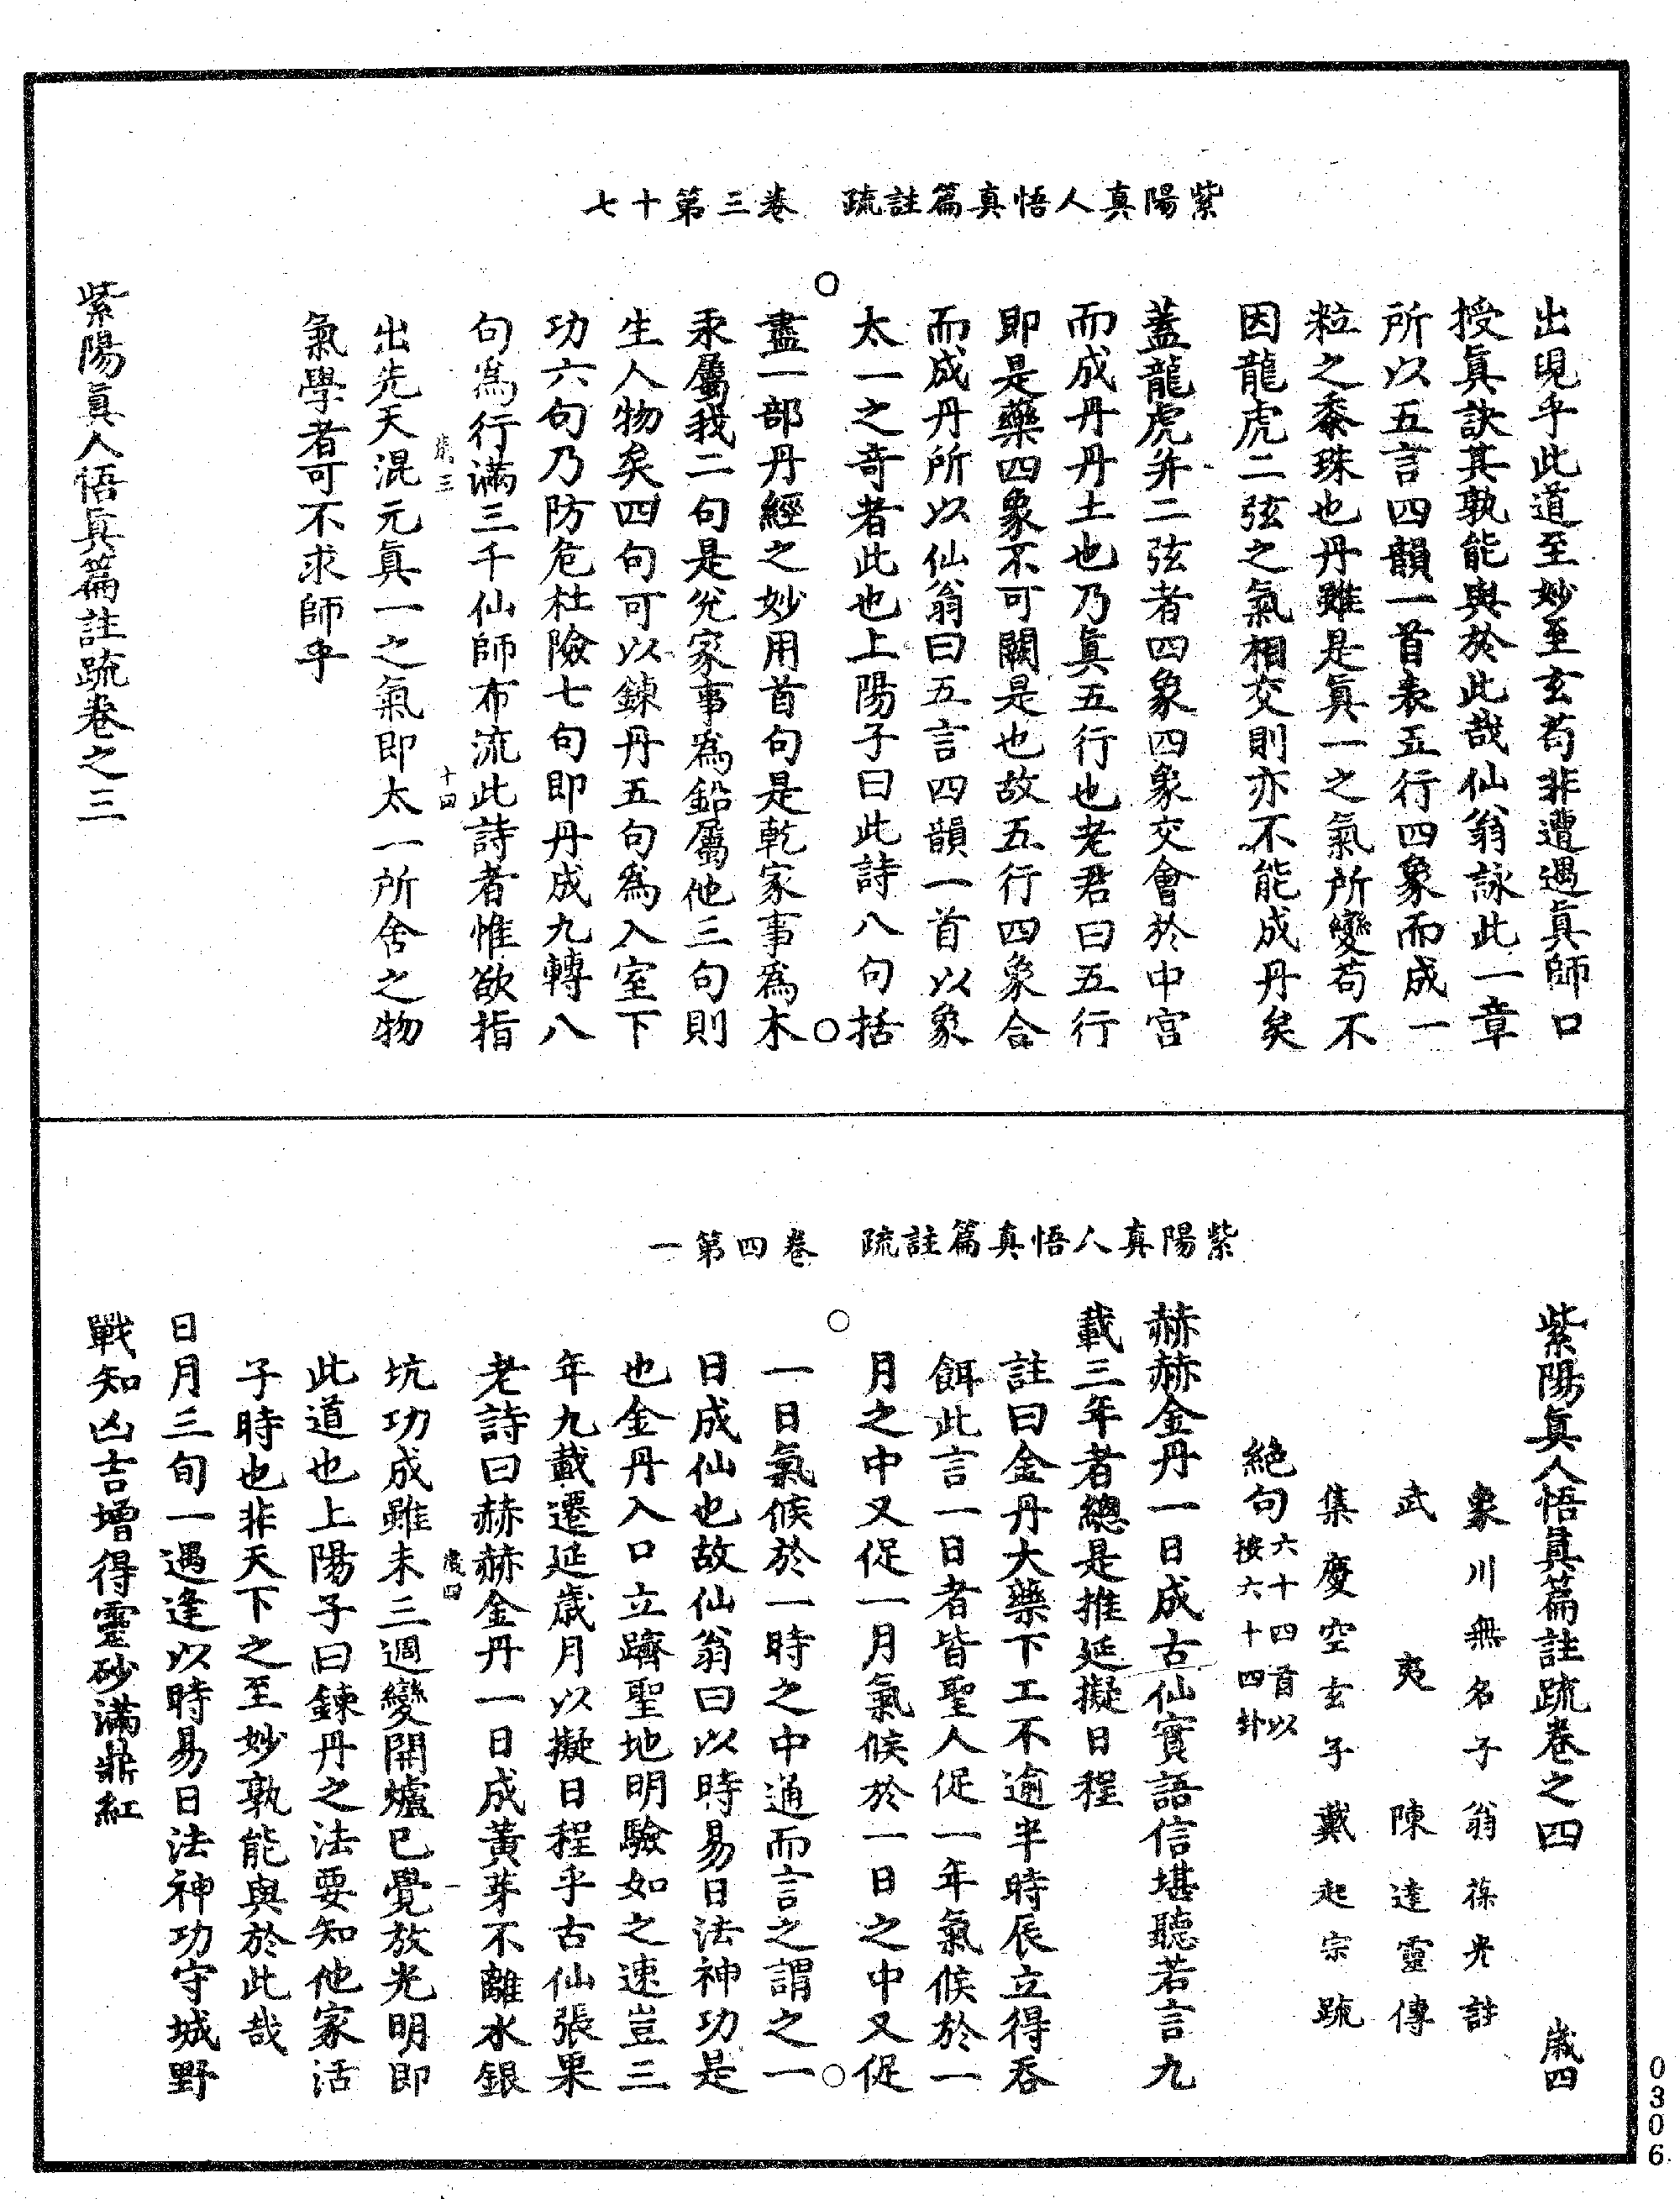 紫陽真人悟真篇註疏　卷三第十七
出現乎此道至妙至玄苟非遭遇眞師口
授眞訣其孰能與於此哉仙翁詠此一章
所以五言四韻一首表五行四象而成一
粒之黍珠也丹雖是眞一之氣所變苟不
因龍虎二弦之氣相交則亦不能成丹矣
蓋龍虎弁二弦者四象四象交會於中宮
而成丹丹土也乃眞五行也老君曰五行
即是藥四象不可闕是也故五行四象合
而成丹所以仙翁曰五言四韻一首以象
太一之奇者此也上陽子曰此詩八句括
盡一部丹經之妙用首句是乾家事爲木
汞屬我二句是兌家事爲鉛屬他三句則
生人物矣四句可以鍊丹五句爲入室下
功六句乃防危杜險七句即丹成九轉八
句爲行滿三千仙師布流此詩者惟欲指
歲三　十四
出先天混元眞一之氣即太一所含之物
氣學者可不求師乎
紫陽眞人悟眞篇註疏卷之三
紫陽真人悟真篇註疏　卷四第一
紫陽眞人悟眞篇註疏卷之四　歲四
象川無名子翁葆光註
武夷陳達靈傳
集慶空玄子戴起宗疏
絕句六十四首以按六十四卦
赫赫金丹一日成古仙實語信堪聽若言九
載三年者總是推延擬日程
註曰金丹大藥下工不逾半時辰立得吞
餌此言一日者皆聖人促一年氣候於一
月之中又促一月氣候於一日之中又促
一日氣候於一時之中通而言之謂之一
日成仙也故仙翁曰以時易日法神功是
也金丹入口立躋聖地明驗如之速豈三
年九載遷延歲月以擬日程乎古仙張果
老詩曰赫赫金丹一日成黃芽不離水銀
歲四　一
坑功成雖未三週變開爐已覺放光明即
此道也上陽子曰鍊丹之法要知他家活
子時也非天下之至妙孰能與於此哉
日月三旬一遇逢以時易日法神功守城野
戰知凶吉增得靈砂滿鼎紅
0306